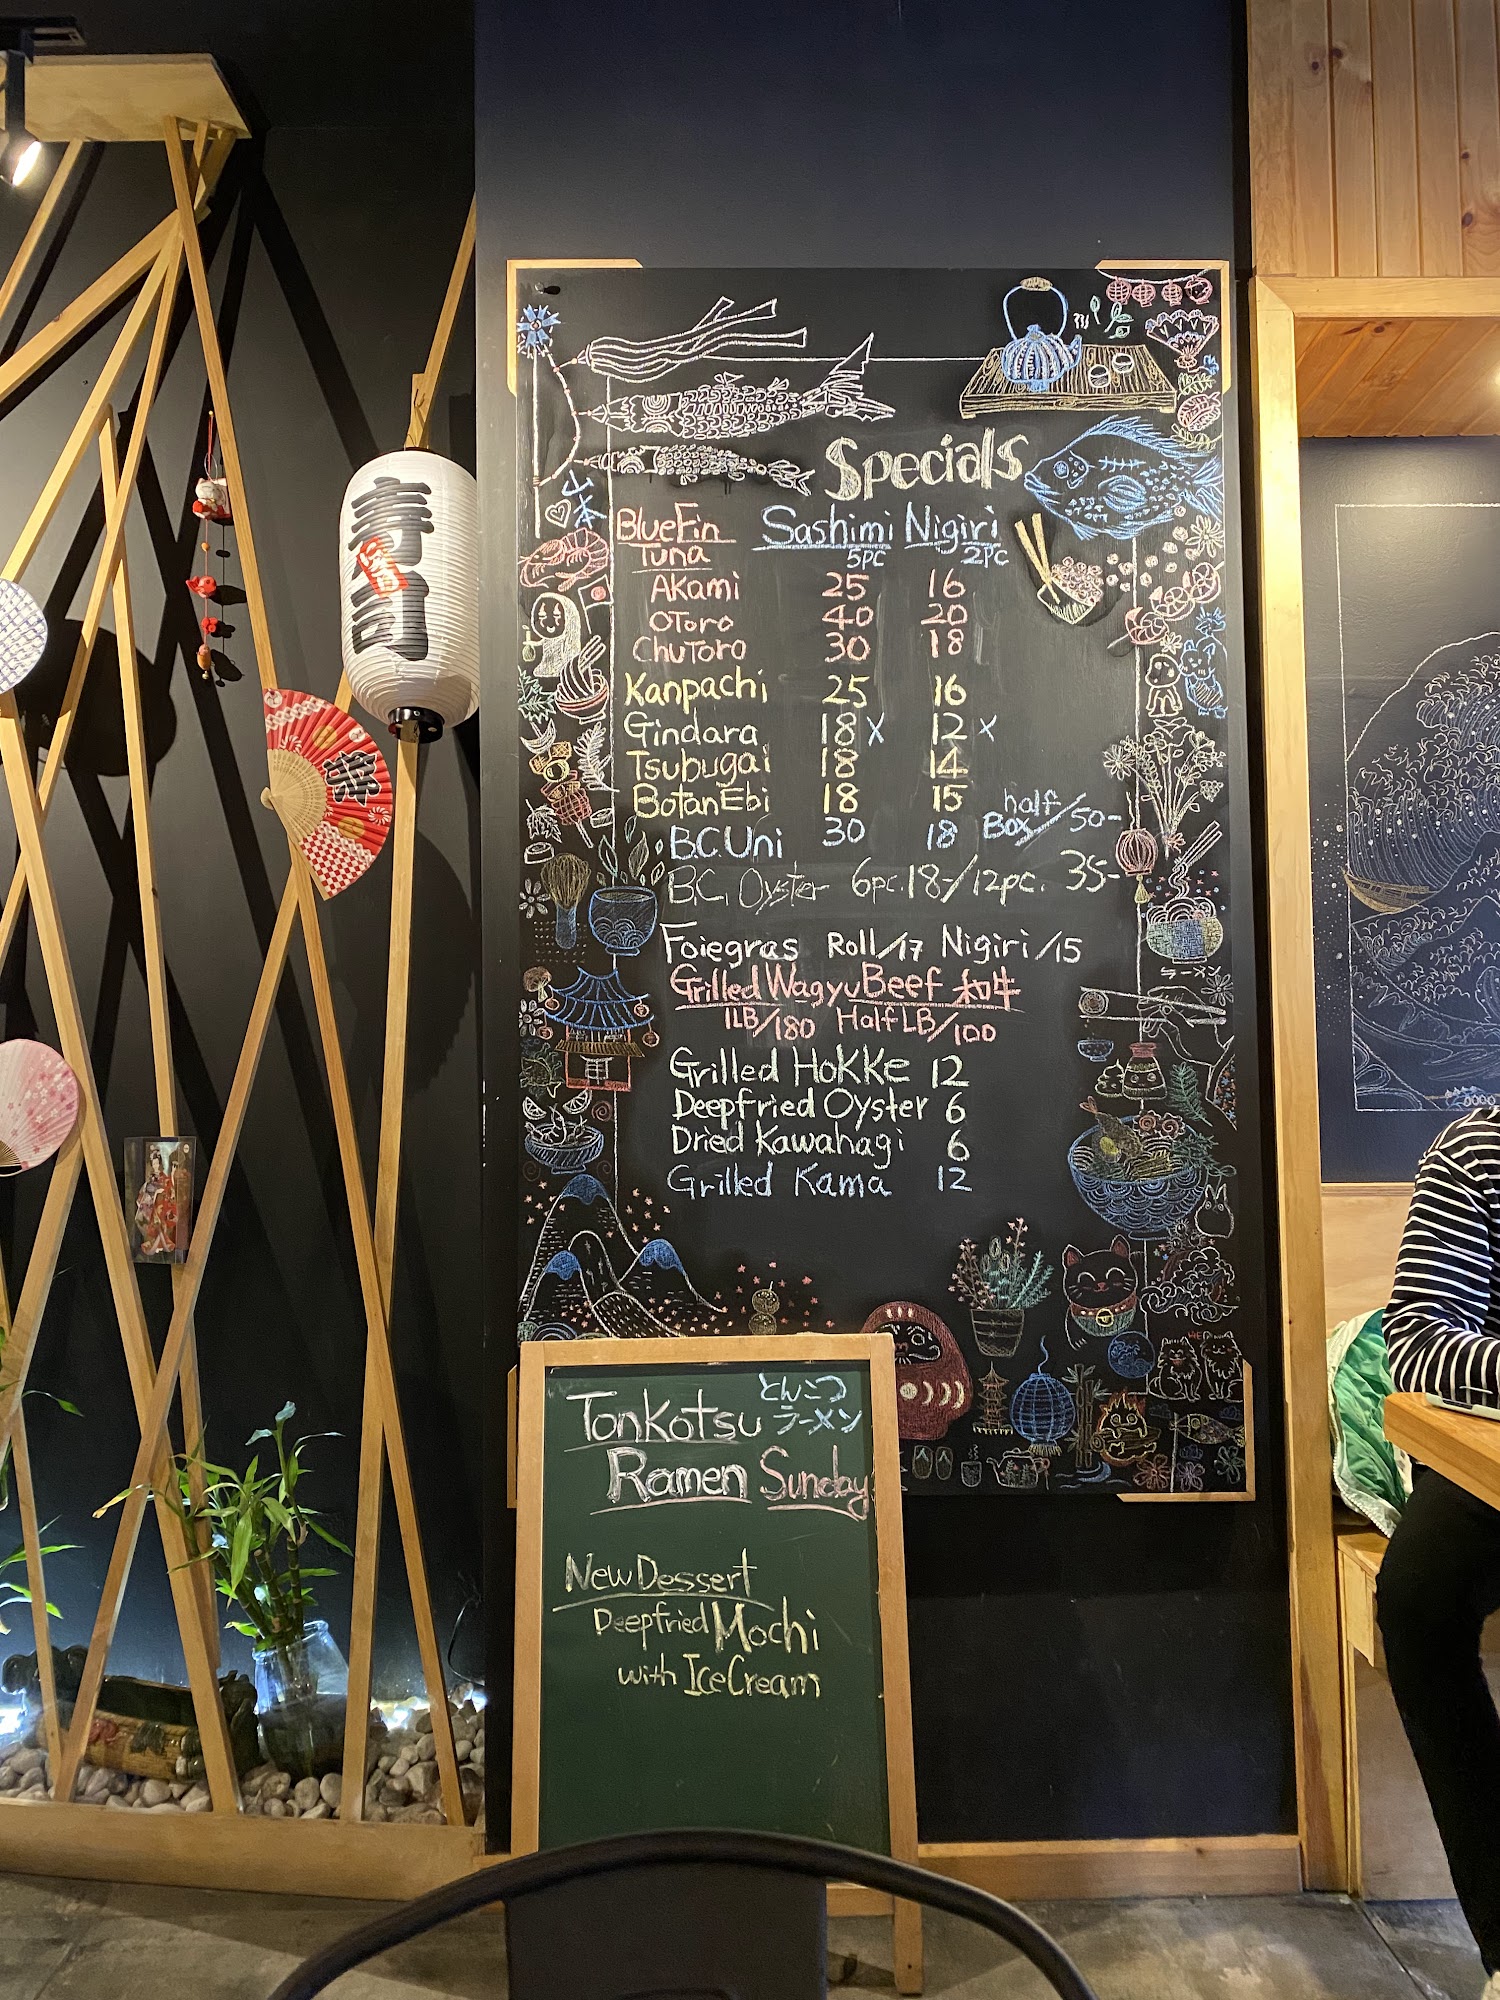 寿司
Specials
BlueFin Sashimi Nigiri
Tuna 5PC 2PC
Akami 25 16
OToro 40 20
ChuToro 30 18
Kanpachi 25 16
Gindara 18 X 12 X
Tsubugai 18 14
BotanEbi 18 15
B.C.Uni 30 18 half Box/50-
B.C. Oyster 6pc.18-/12pc. 35-
Foiegras Roll/17 Nigiri/15
Grilled Wagyu Beef 和牛
1LB/180 Half LB/100
Grilled Hokke 12
Deepfried Oyster 6
Dried Kawahagi 6
Grilled Kama 12
ラーメン
Tonkotsu とんこつ
ラーメン
Ramen Sunday
New Dessert
Deepfried Mochi
with Ice Cream